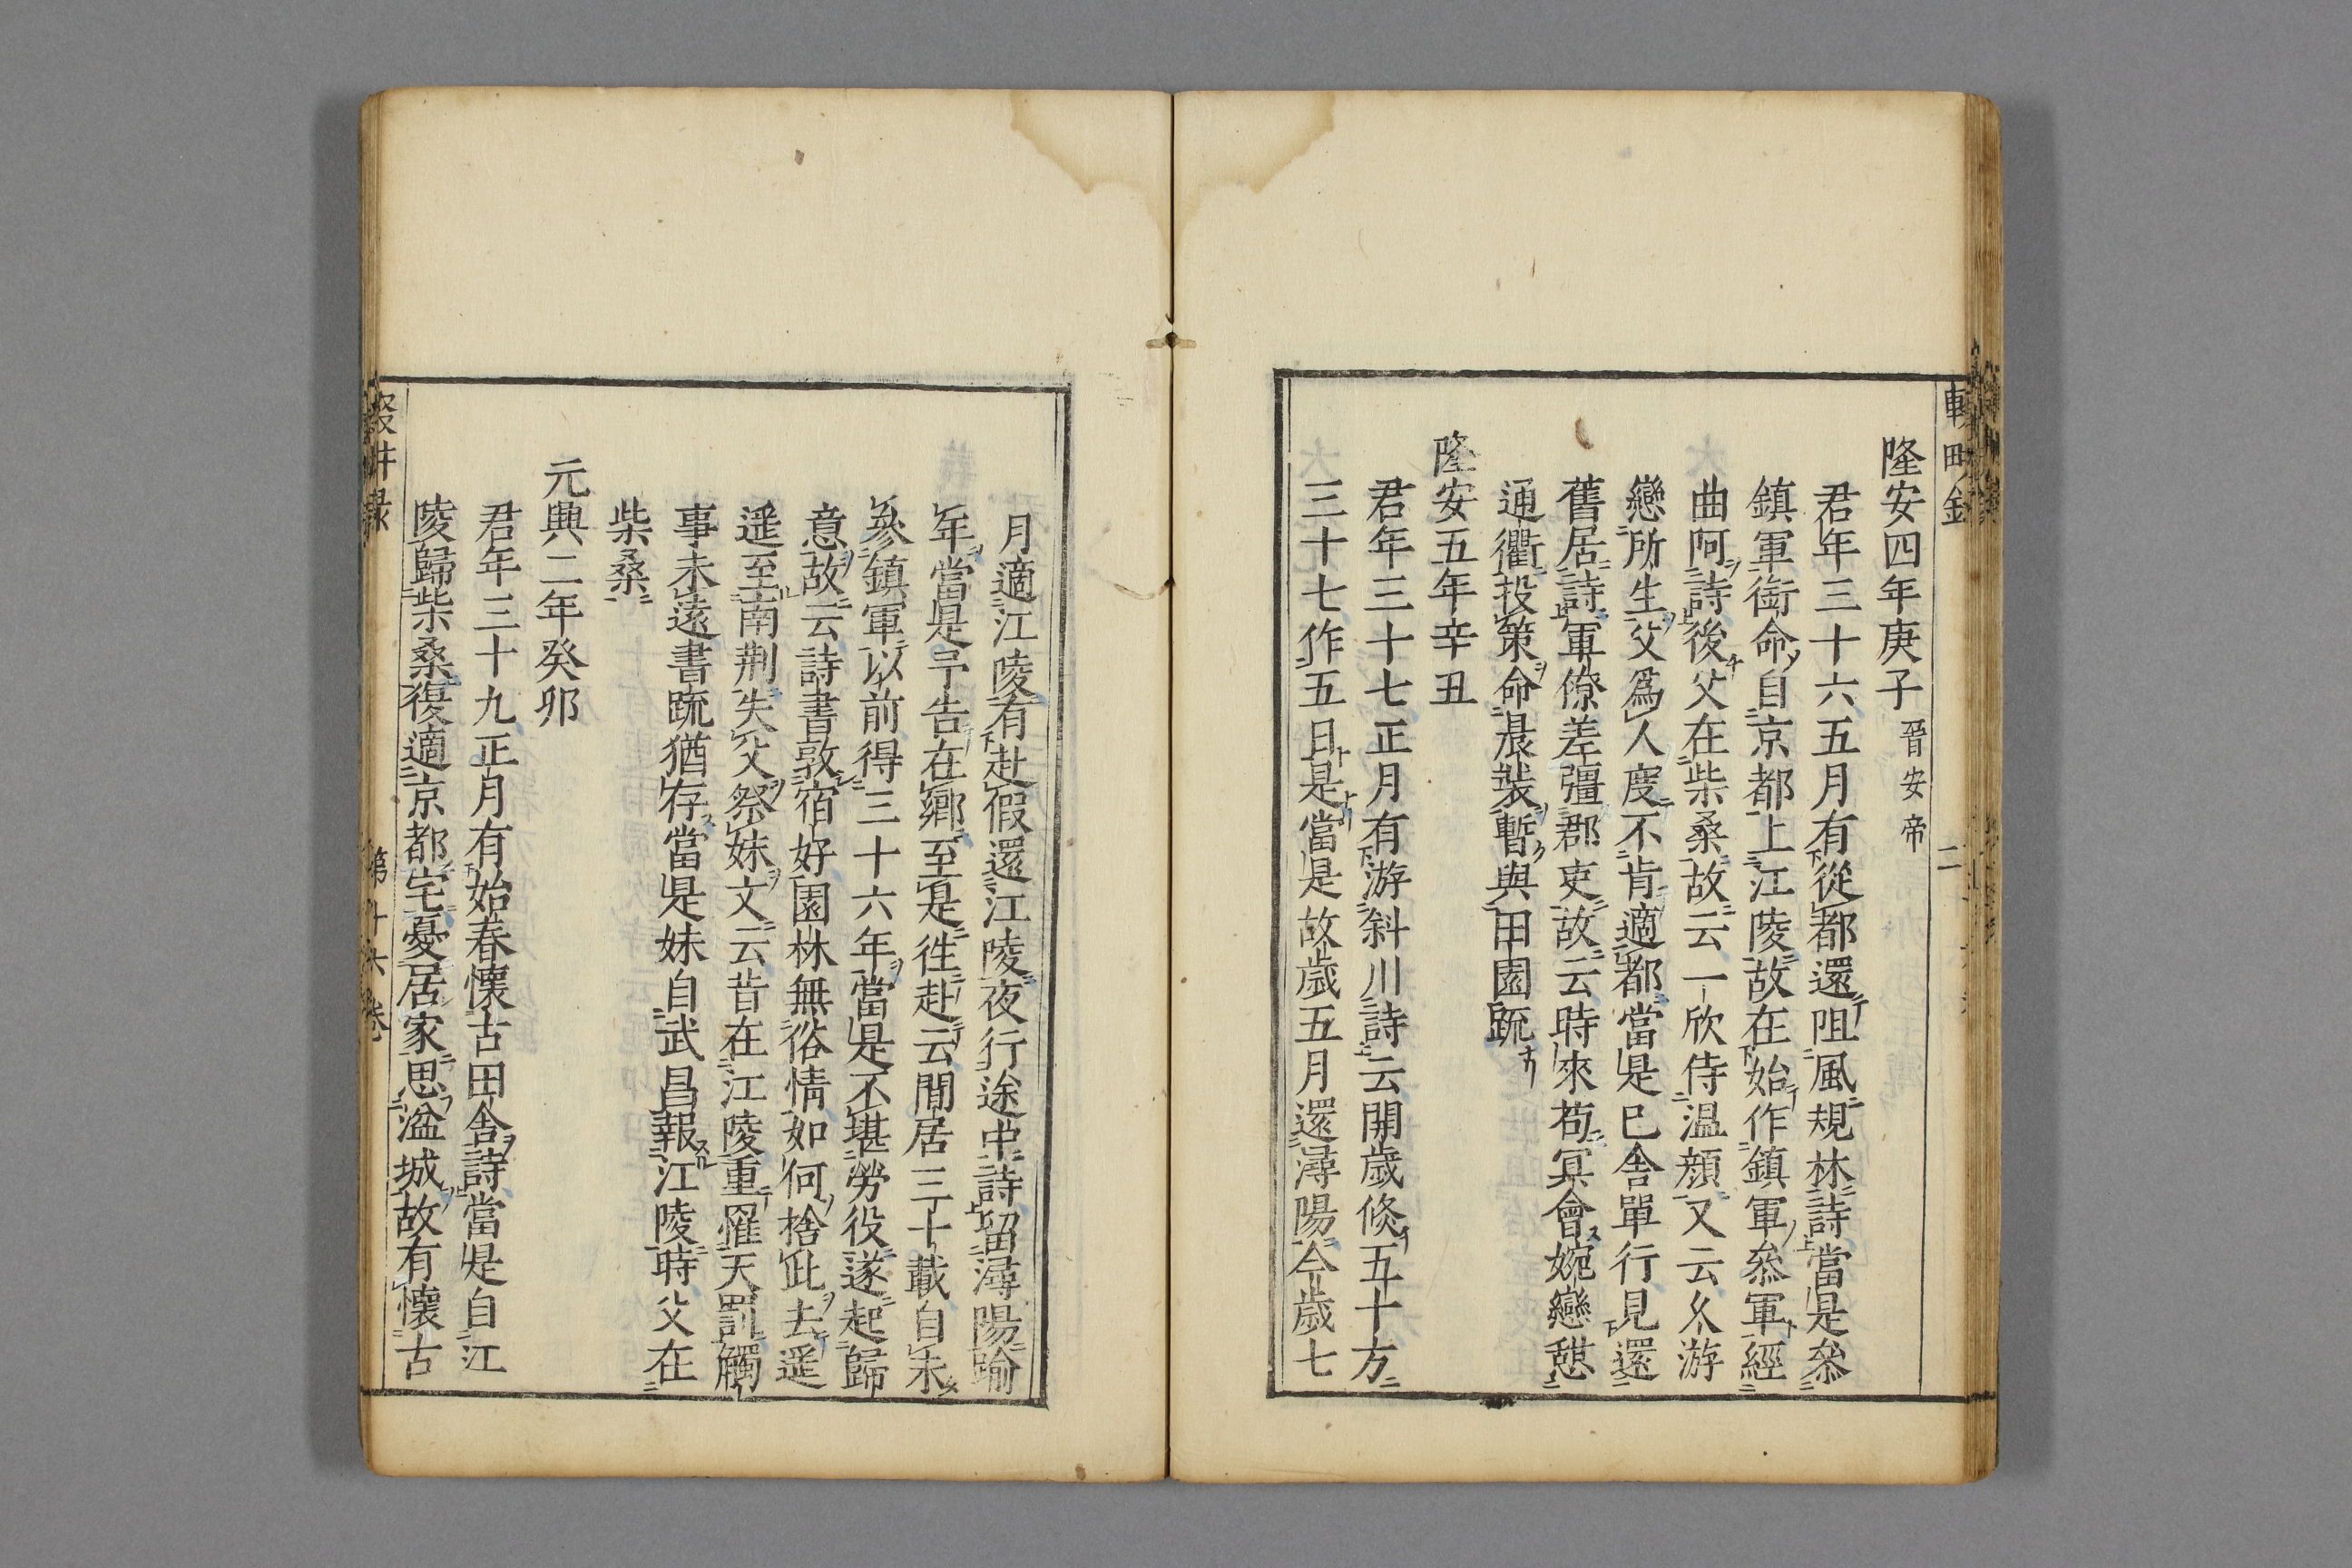 隆安四年庚子 晉安帝
君年三十六五月有從都還阻風規林詩當是叅
鎮軍銜命自京都上江陵故在始作鎮軍叅軍經
曲阿詩後父在柴桑故云一欣侍温顔又云久游
戀所生父爲人度不肯適都當是已舍單行見還
舊居詩軍僚差彊郡吏故云時來苟㝠會婉戀憇
通衢投策命晨裝暫與田園䟽
隆安五年辛丑
君年三十七正月有游斜川詩云開歲倐五十方
三十七作五日是當是故歲五月還潯陽今歲七
月適江陵有赴假還江陵夜行途中詩留潯陽踰
年當是予告在鄉至是徃赴云閒居三十載自未
叅鎮軍以前得三十六年當是不堪勞役遂起歸
意故云詩書敦宿好園林無俗情如何捨此去遥
遥至南荆失父祭妹文云昔在江陵重罹天罰觸
事未遠書䟽猶存當是妹自武昌報江陵時父在
柴桑
元興二年癸卯
君年三十九正月有始春懷古田舍詩當是自江
陵歸柴桑復適京都宅憂居家思湓城故有懷古
第十六卷